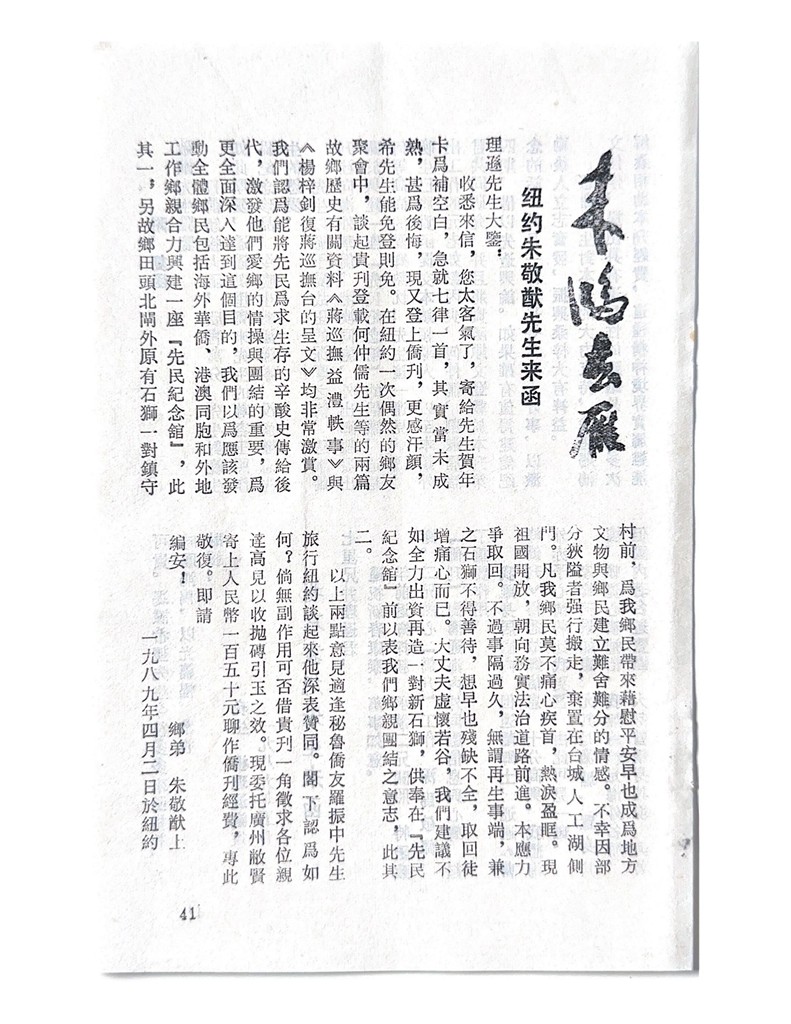 来鸿去雁
纽约朱敬猷先生来函
理遜先生大鑒：
收悉來信，您太客氣了，寄給先生賀年
卡爲補空白，急就七律一首，其實當未成
熟，甚爲後悔，現又登上僑刊，更感汗顔，
希先生能免登則免。在紐約一次偶然的鄉友
聚會中，談起貴刊登載何仲儒先生等的兩篇
故鄉歷史有關資料《蔣巡撫益澧軼事》與
《楊梓釗復蔣巡撫台的呈文》均非常激賞。
我們認爲能將先民爲求生存的辛酸史傳給後
代，激發他們愛鄉的情操與團結的重要，爲
更全面深入達到這個目的，我們以爲應該發
動全體鄉民包括海外華僑、港澳同胞和外地
工作鄉親合力興建一座『先民紀念舘』，此
其一，另故鄉田頭北閘外原有石獅一對鎮守
村前，爲我鄉民帶來藉慰平安早也成爲地方
文物與鄉民建立難舍難分的情感。不幸因部
分狹隘者强行搬走，棄置在台城人工湖側
門。凡我鄉民莫不痛心疾首，熱淚盈眶。現
祖國開放，朝向務實法治道路前進。本應力
爭取回。不過事隔過久，無謂再生事端，兼
之石獅不得善待，想早也殘缺不全，取回徒
增痛心而已。大丈夫虛懷若谷，我們建議不
如全力出資再造一對新石獅，供奉在『先民
紀念舘』前以表我們鄉親團結之意志，此其
二。
以上兩點意見適逢秘魯僑友羅振中先生
旅行紐約談起來他深表賛同。閣下認爲如
何？倘無副作用可否借貴刊一角徵求各位親
達高見以收抛磚引玉之效。現委托廣州敝賢
寄上人民幣一百五十元聊作僑刊經費，專此
敬復。即請
編安！
鄉弟　朱敬猷上
一九八九年四月二日於紐約
41